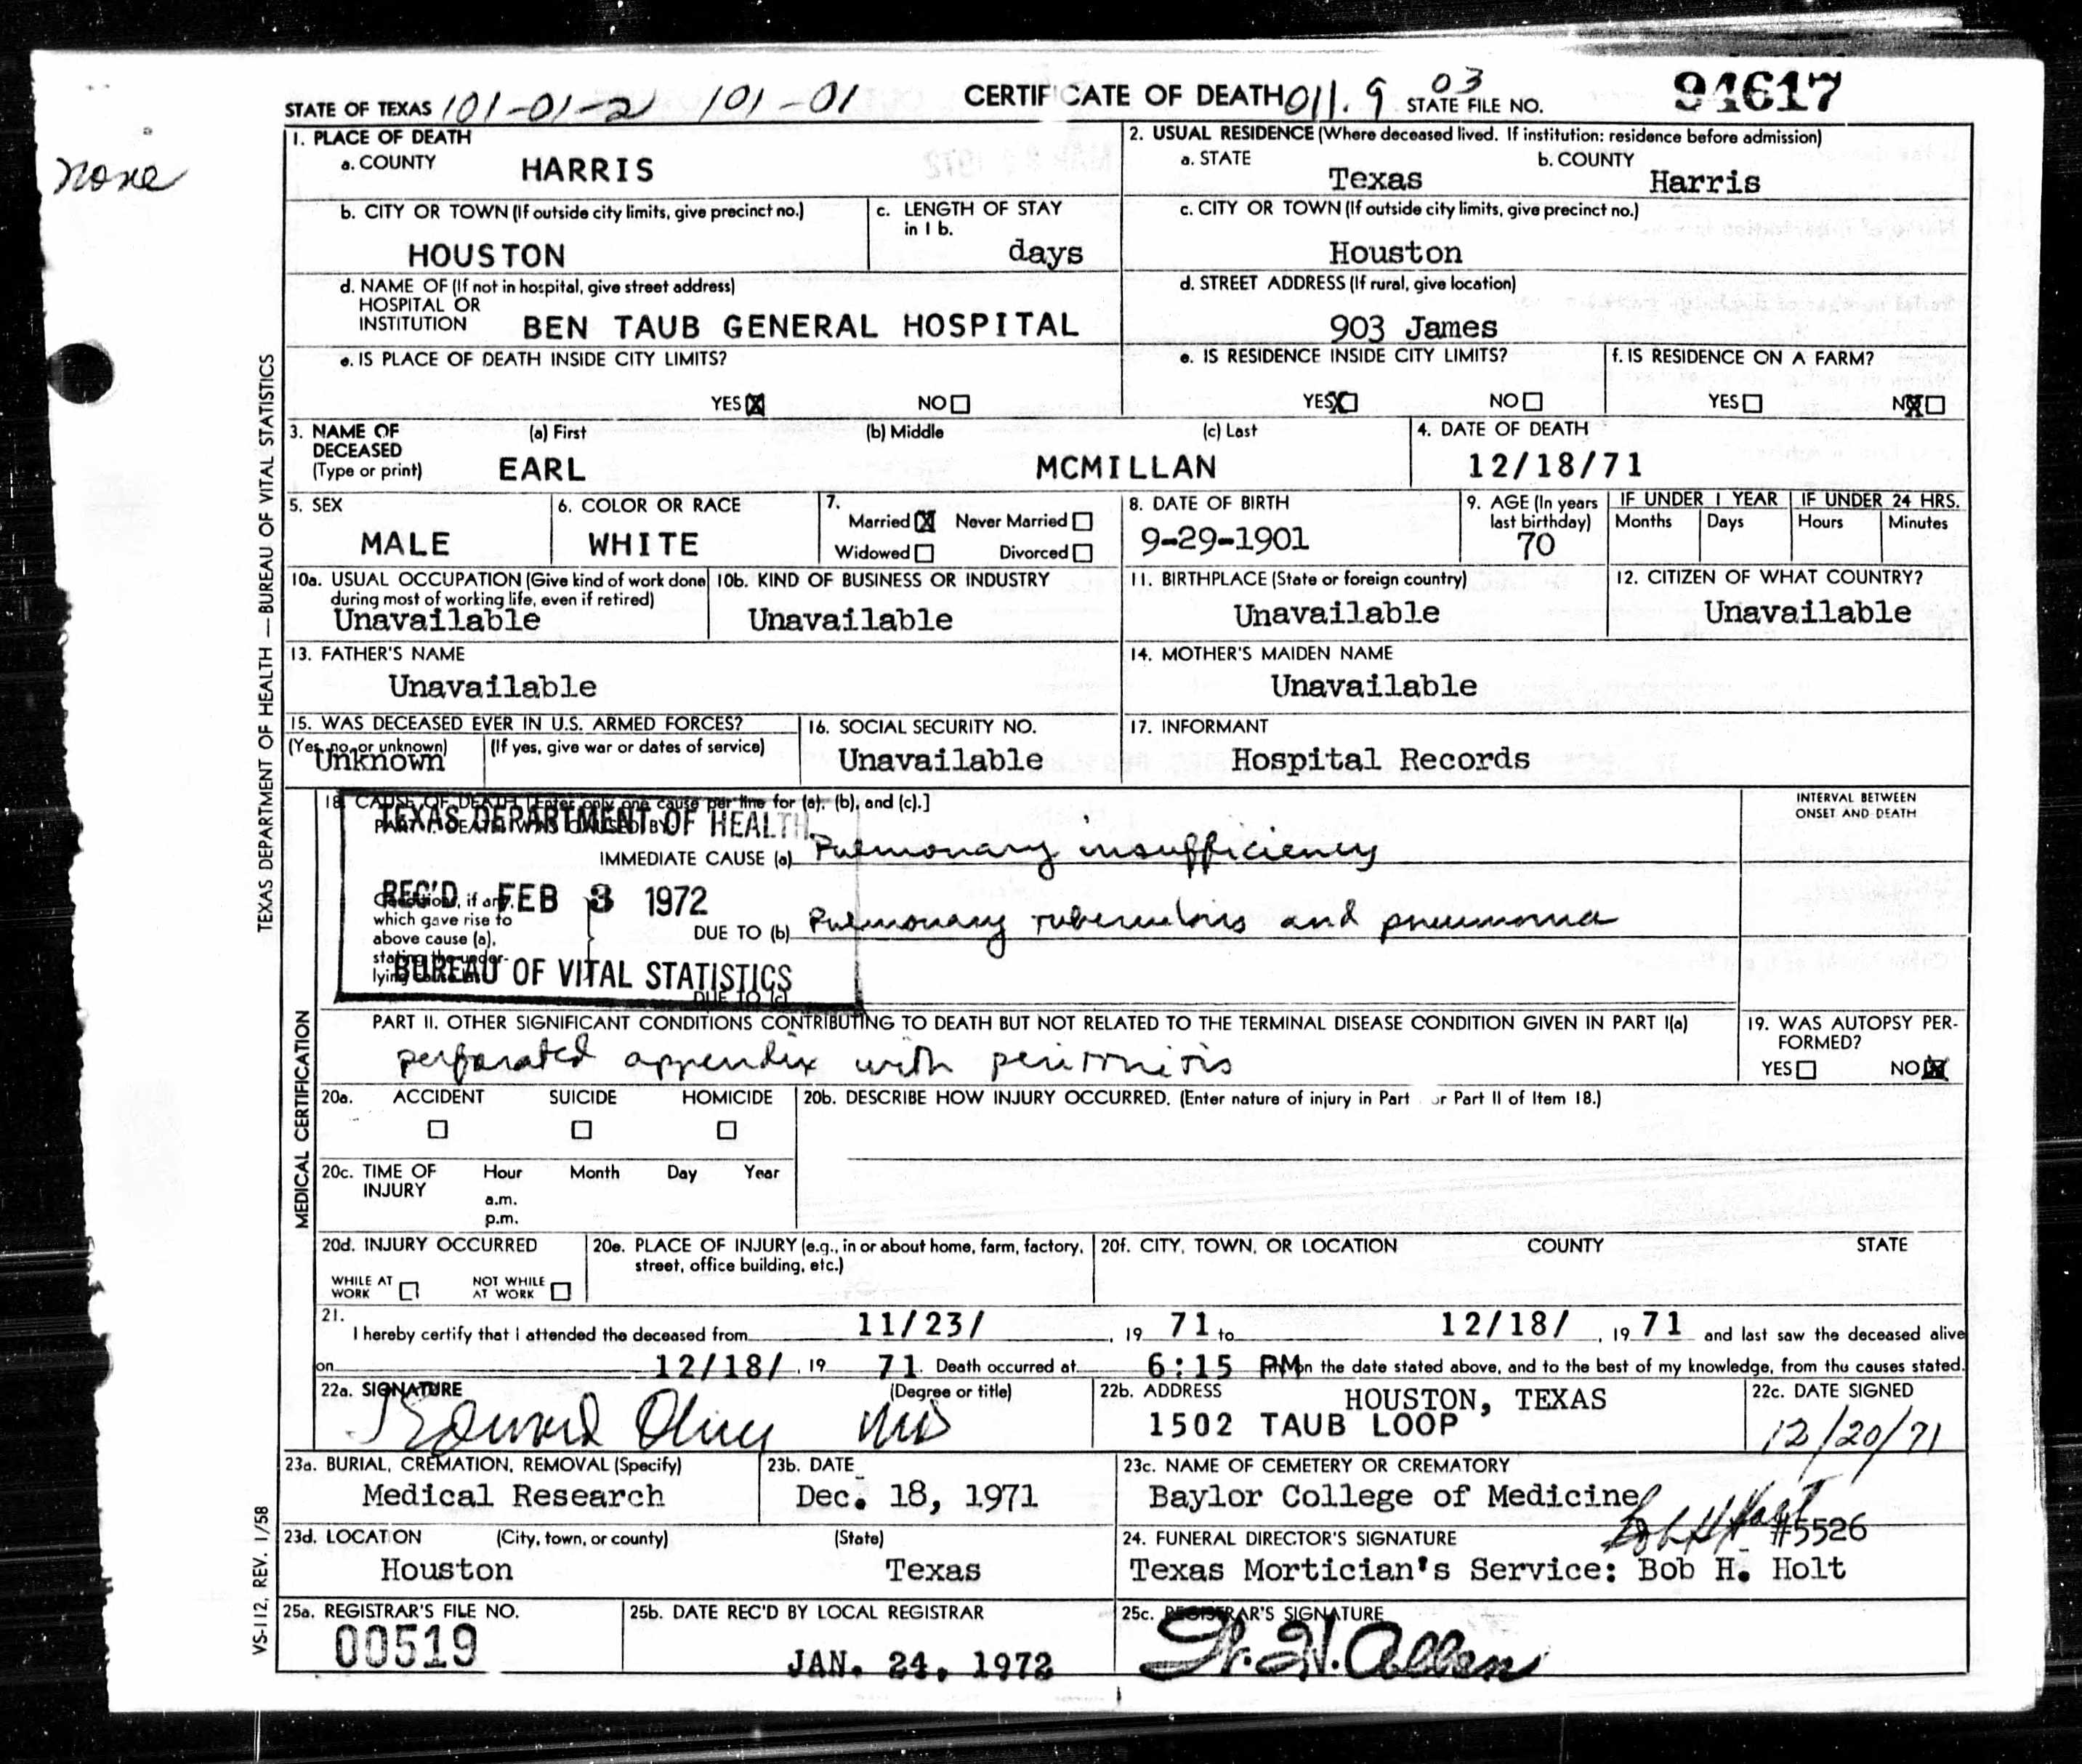 STATE OF TEXAS 101-01-2 101-01 CERTIFICATE OF DEATH 011.9 03 STATE FILE NO. 94617
none
1. PLACE OF DEATH
a. COUNTY HARRIS
2. USUAL RESIDENCE (Where deceased lived. If institution: residence before admission)
a. STATE Texas b. COUNTY Harris
b. CITY OR TOWN (If outside city limits, give precinct no.) HOUSTON
c. LENGTH OF STAY in 1 b. days
c. CITY OR TOWN (If outside city limits, give precinct no.) Houston
d. NAME OF (If not in hospital, give street address)
HOSPITAL OR
INSTITUTION BEN TAUB GENERAL HOSPITAL
d. STREET ADDRESS (If rural, give location)
903 James
e. IS PLACE OF DEATH INSIDE CITY LIMITS?
YES X NO
e. IS RESIDENCE INSIDE CITY LIMITS?
YES X NO
f. IS RESIDENCE ON A FARM?
YES NO X
3. NAME OF DECEASED (Type or print)
(a) First (b) Middle (c) Last
EARL MCMILLAN
4. DATE OF DEATH
12/18/71
5. SEX
MALE
6. COLOR OR RACE
WHITE
7. Married X Never Married
Widowed Divorced
8. DATE OF BIRTH
9-29-1901
9. AGE (In years last birthday)
70
IF UNDER 1 YEAR
Months Days
IF UNDER 24 HRS.
Hours Minutes
10a. USUAL OCCUPATION (Give kind of work done during most of working life, even if retired)
Unavailable
10b. KIND OF BUSINESS OR INDUSTRY
Unavailable
11. BIRTHPLACE (State or foreign country)
Unavailable
12. CITIZEN OF WHAT COUNTRY?
Unavailable
13. FATHER'S NAME
Unavailable
14. MOTHER'S MAIDEN NAME
Unavailable
15. WAS DECEASED EVER IN U.S. ARMED FORCES?
(Yes, no, or unknown) (If yes, give war or dates of service)
Unknown
16. SOCIAL SECURITY NO.
Unavailable
17. INFORMANT
Hospital Records
18. CAUSE OF DEATH [Enter only one cause per line for (a), (b), and (c).]
INTERVAL BETWEEN
ONSET AND DEATH
TEXAS DEPARTMENT OF HEALTH
PART I. DEATH WAS CAUSED BY
IMMEDIATE CAUSE (a) Pulmonary insufficiency
REC'D FEB 3 1972
Conditions, if any,
which gave rise to
above cause (a),
stating the under-
lying cause last
DUE TO (b) Pulmonary tuberculosis and pneumonia
BUREAU OF VITAL STATISTICS
DUE TO (c)
PART II. OTHER SIGNIFICANT CONDITIONS CONTRIBUTING TO DEATH BUT NOT RELATED TO THE TERMINAL DISEASE CONDITION GIVEN IN PART I(a)
perforated appendix with peritonitis
19. WAS AUTOPSY PER-
FORMED?
YES NO X
20a. ACCIDENT SUICIDE HOMICIDE
20b. DESCRIBE HOW INJURY OCCURRED. (Enter nature of injury in Part or Part II of Item 18.)
20c. TIME OF INJURY Hour Month Day Year
a.m.
p.m.
20d. INJURY OCCURRED
WHILE AT WORK NOT WHILE AT WORK
20e. PLACE OF INJURY (e.g., in or about home, farm, factory, street, office building, etc.)
20f. CITY, TOWN, OR LOCATION COUNTY STATE
21.
I hereby certify that I attended the deceased from 11/23/, 19 71 to 12/18/, 19 71 and last saw the deceased alive
on 12/18/, 19 71. Death occurred at 6:15 PM on the date stated above, and to the best of my knowledge, from the causes stated.
22a. SIGNATURE (Degree or title)
Edward Oliver MD
22b. ADDRESS HOUSTON, TEXAS
1502 TAUB LOOP
22c. DATE SIGNED
12/20/71
23a. BURIAL, CREMATION, REMOVAL (Specify)
Medical Research
23b. DATE
Dec. 18, 1971
23c. NAME OF CEMETERY OR CREMATORY
Baylor College of Medicine
23d. LOCATION (City, town, or county) (State)
Houston Texas
24. FUNERAL DIRECTOR'S SIGNATURE Bob H Holt #5526
Texas Mortician's Service: Bob H. Holt
25a. REGISTRAR'S FILE NO.
00519
25b. DATE REC'D BY LOCAL REGISTRAR
JAN. 24, 1972
25c. REGISTRAR'S SIGNATURE
W. H. Allen
TEXAS DEPARTMENT OF HEALTH — BUREAU OF VITAL STATISTICS
MEDICAL CERTIFICATION
VS-112, REV. 1/58